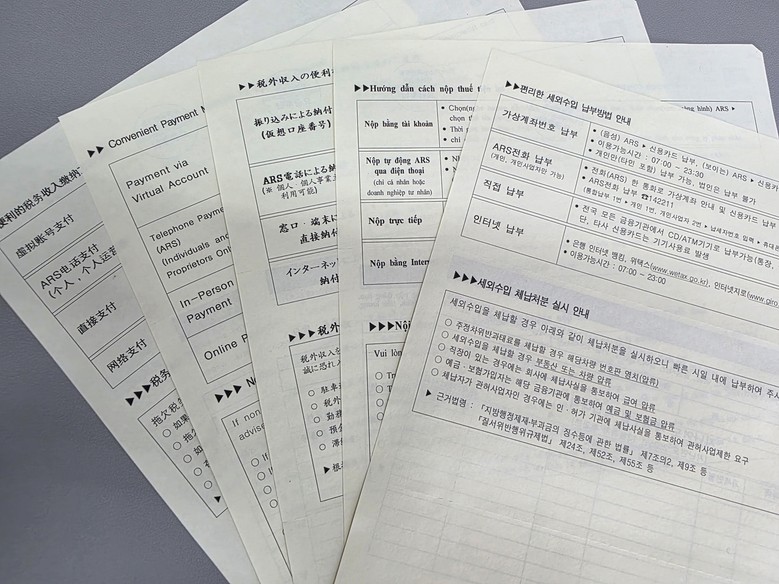 便利的税务收入缴纳
虚拟账号支付
ARS电话支付
(个人, 个人运营
直接支付
网络支付
▶▶▶税务
拖欠税
○ 如果
○ 拖
○ 如
▶▶ Convenient Payment
Payment via
Virtual Account
Telephone Payme
(ARS)
(Individuals and
Proprietors Onl
In-Person
Payment
Online P
▶▶▶ N
If non
advise
○ I
▶▶税外収入の便利
振り込みによる納付
(仮想口座番号)
ARS電話による納
(※ 個人、個人事業主
利用可能)
窓口・端末に
直接納付
インターネッ
納付
▶▶▶税外
税外収入を
誠に恐れ入
○ 駐車
○ 税外
○ 勤務
○ 預金
○ 滞納
▶根
▶▶Hướng dẫn cách nộp thuế
Nộp bằng tài khoản
• Chọn(n
chọn t
• Thời
chỉ
Nộp tự động ARS
qua điện thoại
(chỉ cá nhân hoặc
doanh nghiệp tư nhân)
• NH
• N
Nộp trực tiếp
Nộp bằng Inter
▶▶▶Nội
Vui lòn
○ Tr
○ T
hình) ARS ▶
▶▶편리한 세외수입 납부방법 안내
가상계좌번호 납부
• (음성) ARS ▶ 신용카드 납부, (보이는) ARS ▶ 신용카
• 이용가능시간 : 07:00 ~ 23:30
• 개인만(타인 포함) 납부 가능, 법인은 납부 불가
ARS전화 납부
(개인, 개인사업자만 가능)
• 전화(ARS) 한 통화로 가상계좌 안내 및 신용카드 납부
• ARS전화 납부 ☎142211
(통합납부 1번 ▶ 개인 1번, 개인사업자 2번 ▶ 납세자번호 입력 ▶ 휴대폰
직접 납부
• 전국 모든 금융기관에서 CD/ATM기기로 납부가능(통장,
단, 타사 신용카드는 기기사용료 발생
인터넷 납부
• 은행 인터넷 뱅킹, 위택스(www.wetax.go.kr), 인터넷지로(www.giro.
• 이용가능시간 : 07:00 ~ 23:00
▶▶▶세외수입 체납처분 실시 안내
세외수입을 체납할 경우 아래와 같이 체납처분을 실시하오니 빠른 시일 내에 납부하여 주시
○ 주정차위반과태료를 체납할 경우 해당차량 번호판 영치(압류)
○ 세외수입을 체납할 경우 부동산 또는 차량 압류
○ 직장이 있는 경우에는 회사에 체납사실을 통보하여 급여 압류
○ 예금·보험가입자는 해당 금융기관에 통보하여 예금 및 보험금 압류
○ 체납자가 관허사업자인 경우에는 인·허가 기관에 체납사실을 통보하여 관허사업제한 요구
▶ 근거법령 : 「지방행정제재·부과금의 징수등에 관한 법률」 제7조의2, 제9조 등
「질서위반행위규제법」 제24조, 제52조, 제55조 등